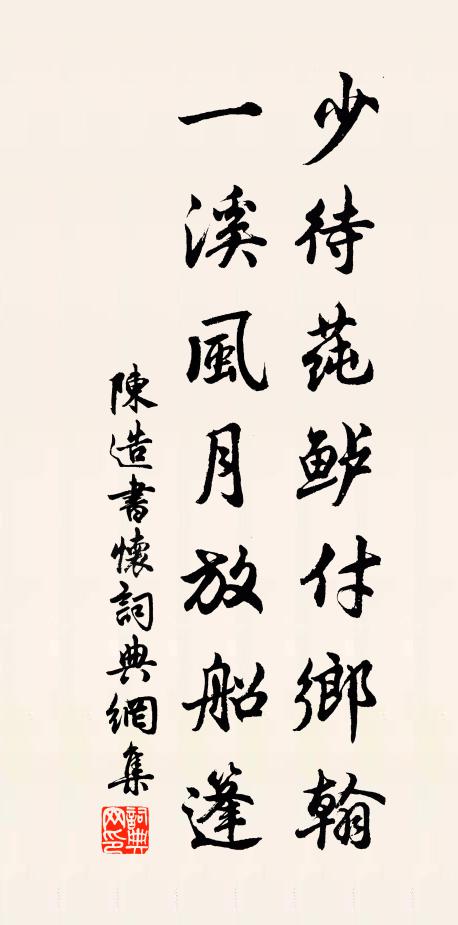 少待莼鲈付鄉翰
一溪風月放船篷
陳造書懷詞典網集
詞典网印